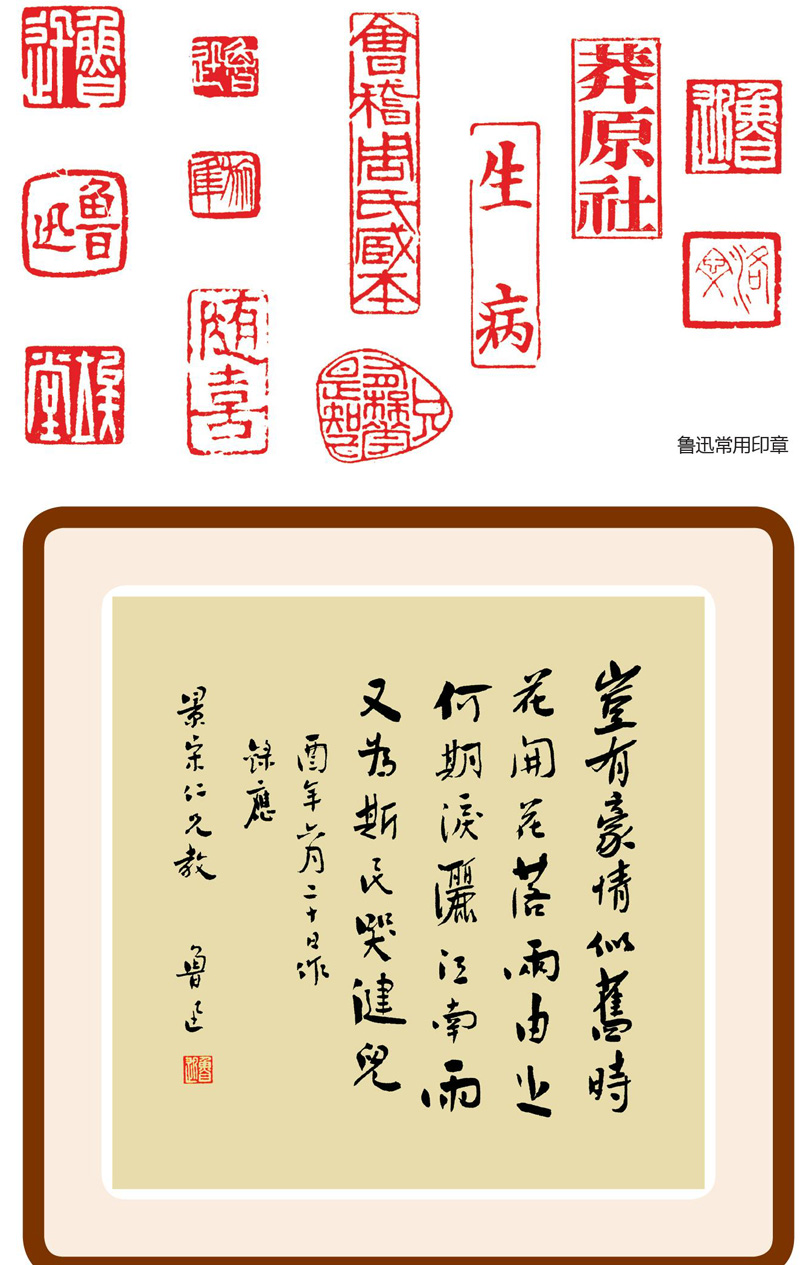 魯迅
魯迅
會稽周氏臧本
莽原社
魯迅
生病
魯迅
旅隼
洛文
随喜
俟堂
鲁迅常用印章
豈有豪情似舊時
花開花落兩由之
何期淚灑江南雨
又為斯民哭健兒
酉年六月二十日作
錄應
景宋仁兄教 魯迅
魯迅